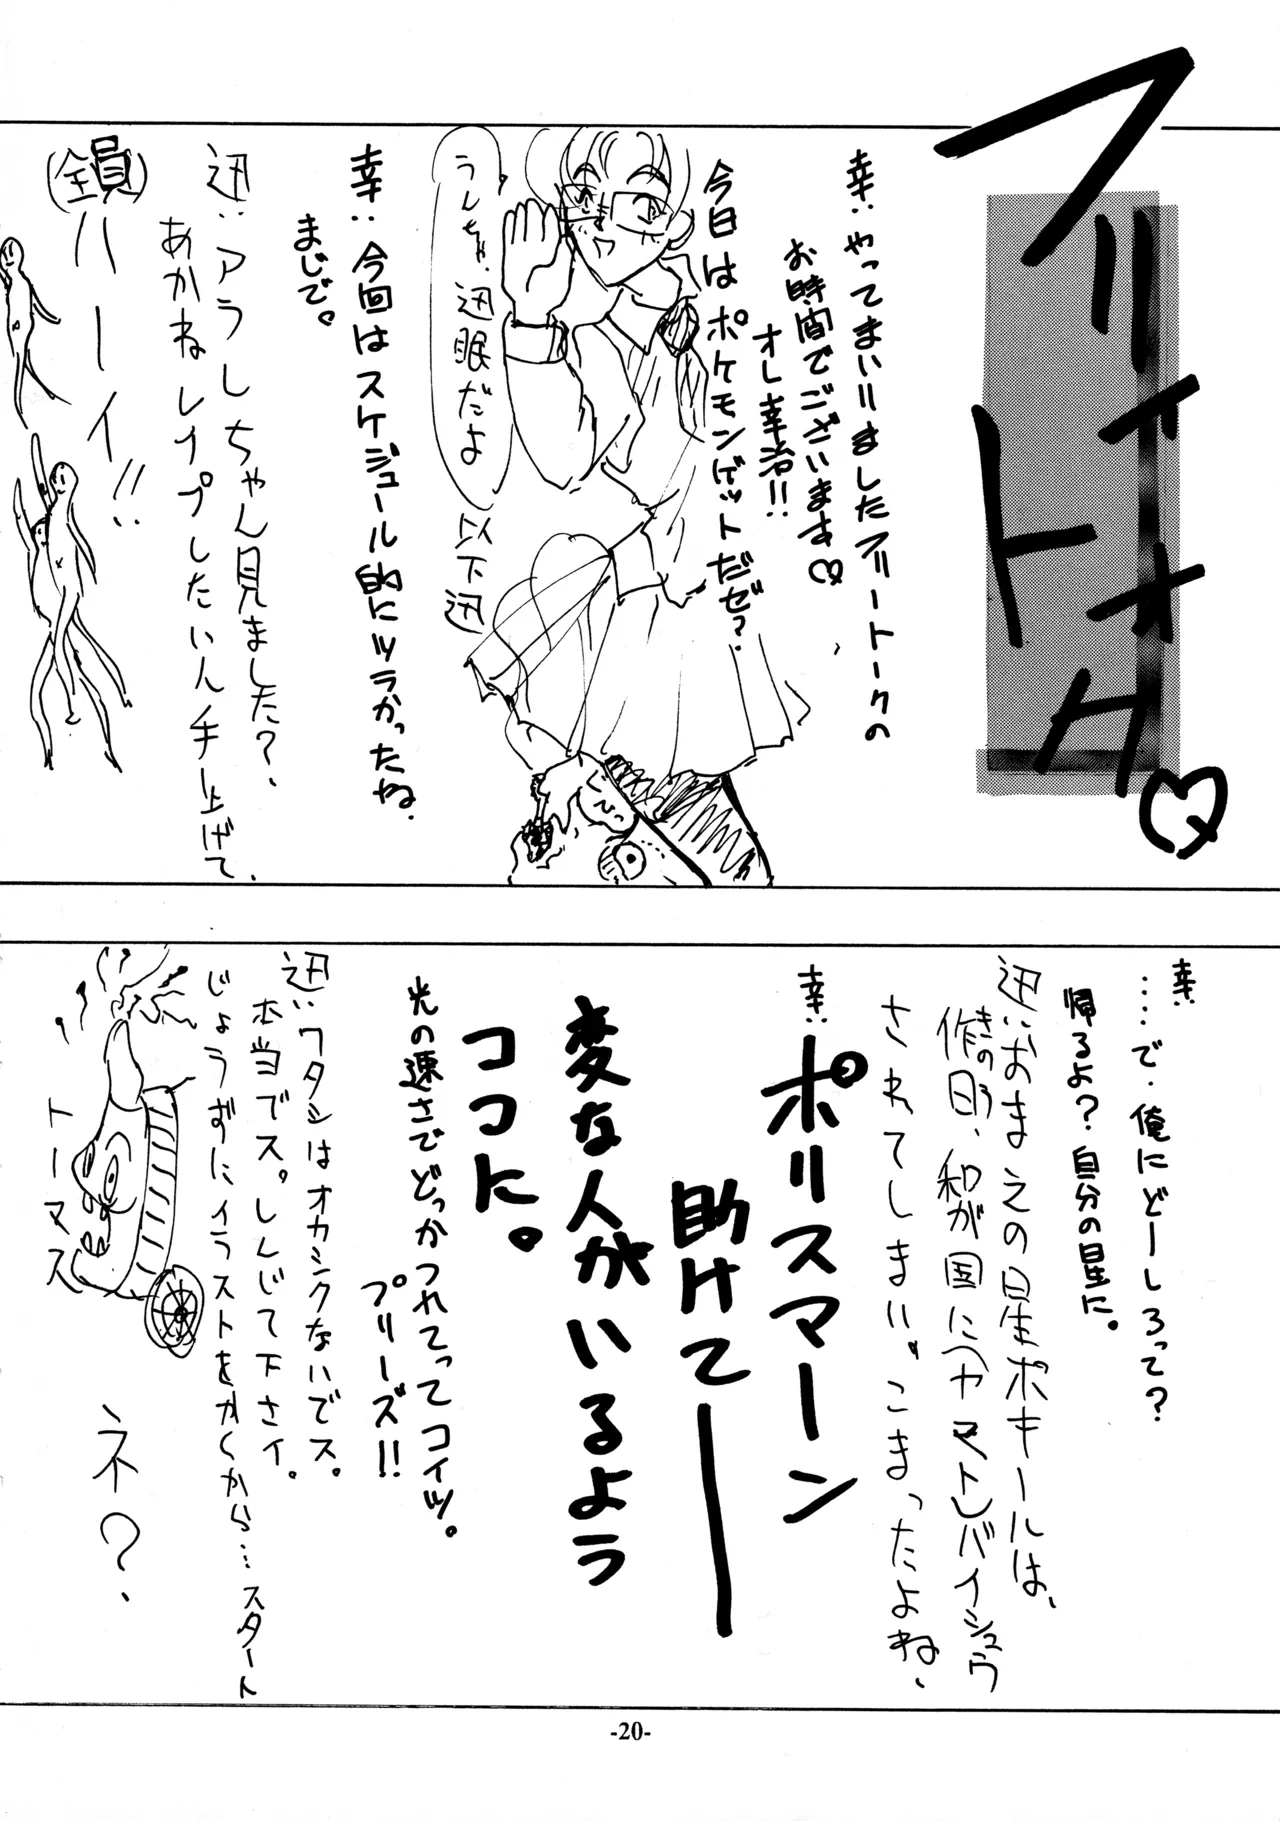 フリートーク♡
幸:やってまいりましたフリートークの
お時間でございます♡
オレ幸治!!
今日はポケモンゲットだぜ?
うんちゃ、迅眠だよ
以下迅
幸:今回はスケジュール的にツラかったね、
まじで。
迅:アラしちゃん見ました?、
あかねレイプしたいん手上げて、
(全員)ハーイ!!
幸:
……で・俺にどーしろって?
帰るよ?自分の星に。
迅:おまえの星ポキールは、
作日、和が国に(ヤマト)バイシュウ
きのう
されてしまい。こまったよね、
幸:ポリスマーン
助けてー
変な人がいるよう
ココに。
光の速さでどっかつれてってコイツ。
プリーズ!!
迅:ワタシはオカシクないでス。
本当でス。しんじて下さイ。
じょうずにイラストをかくから…スタート
トーマス
ネ?、
-20-